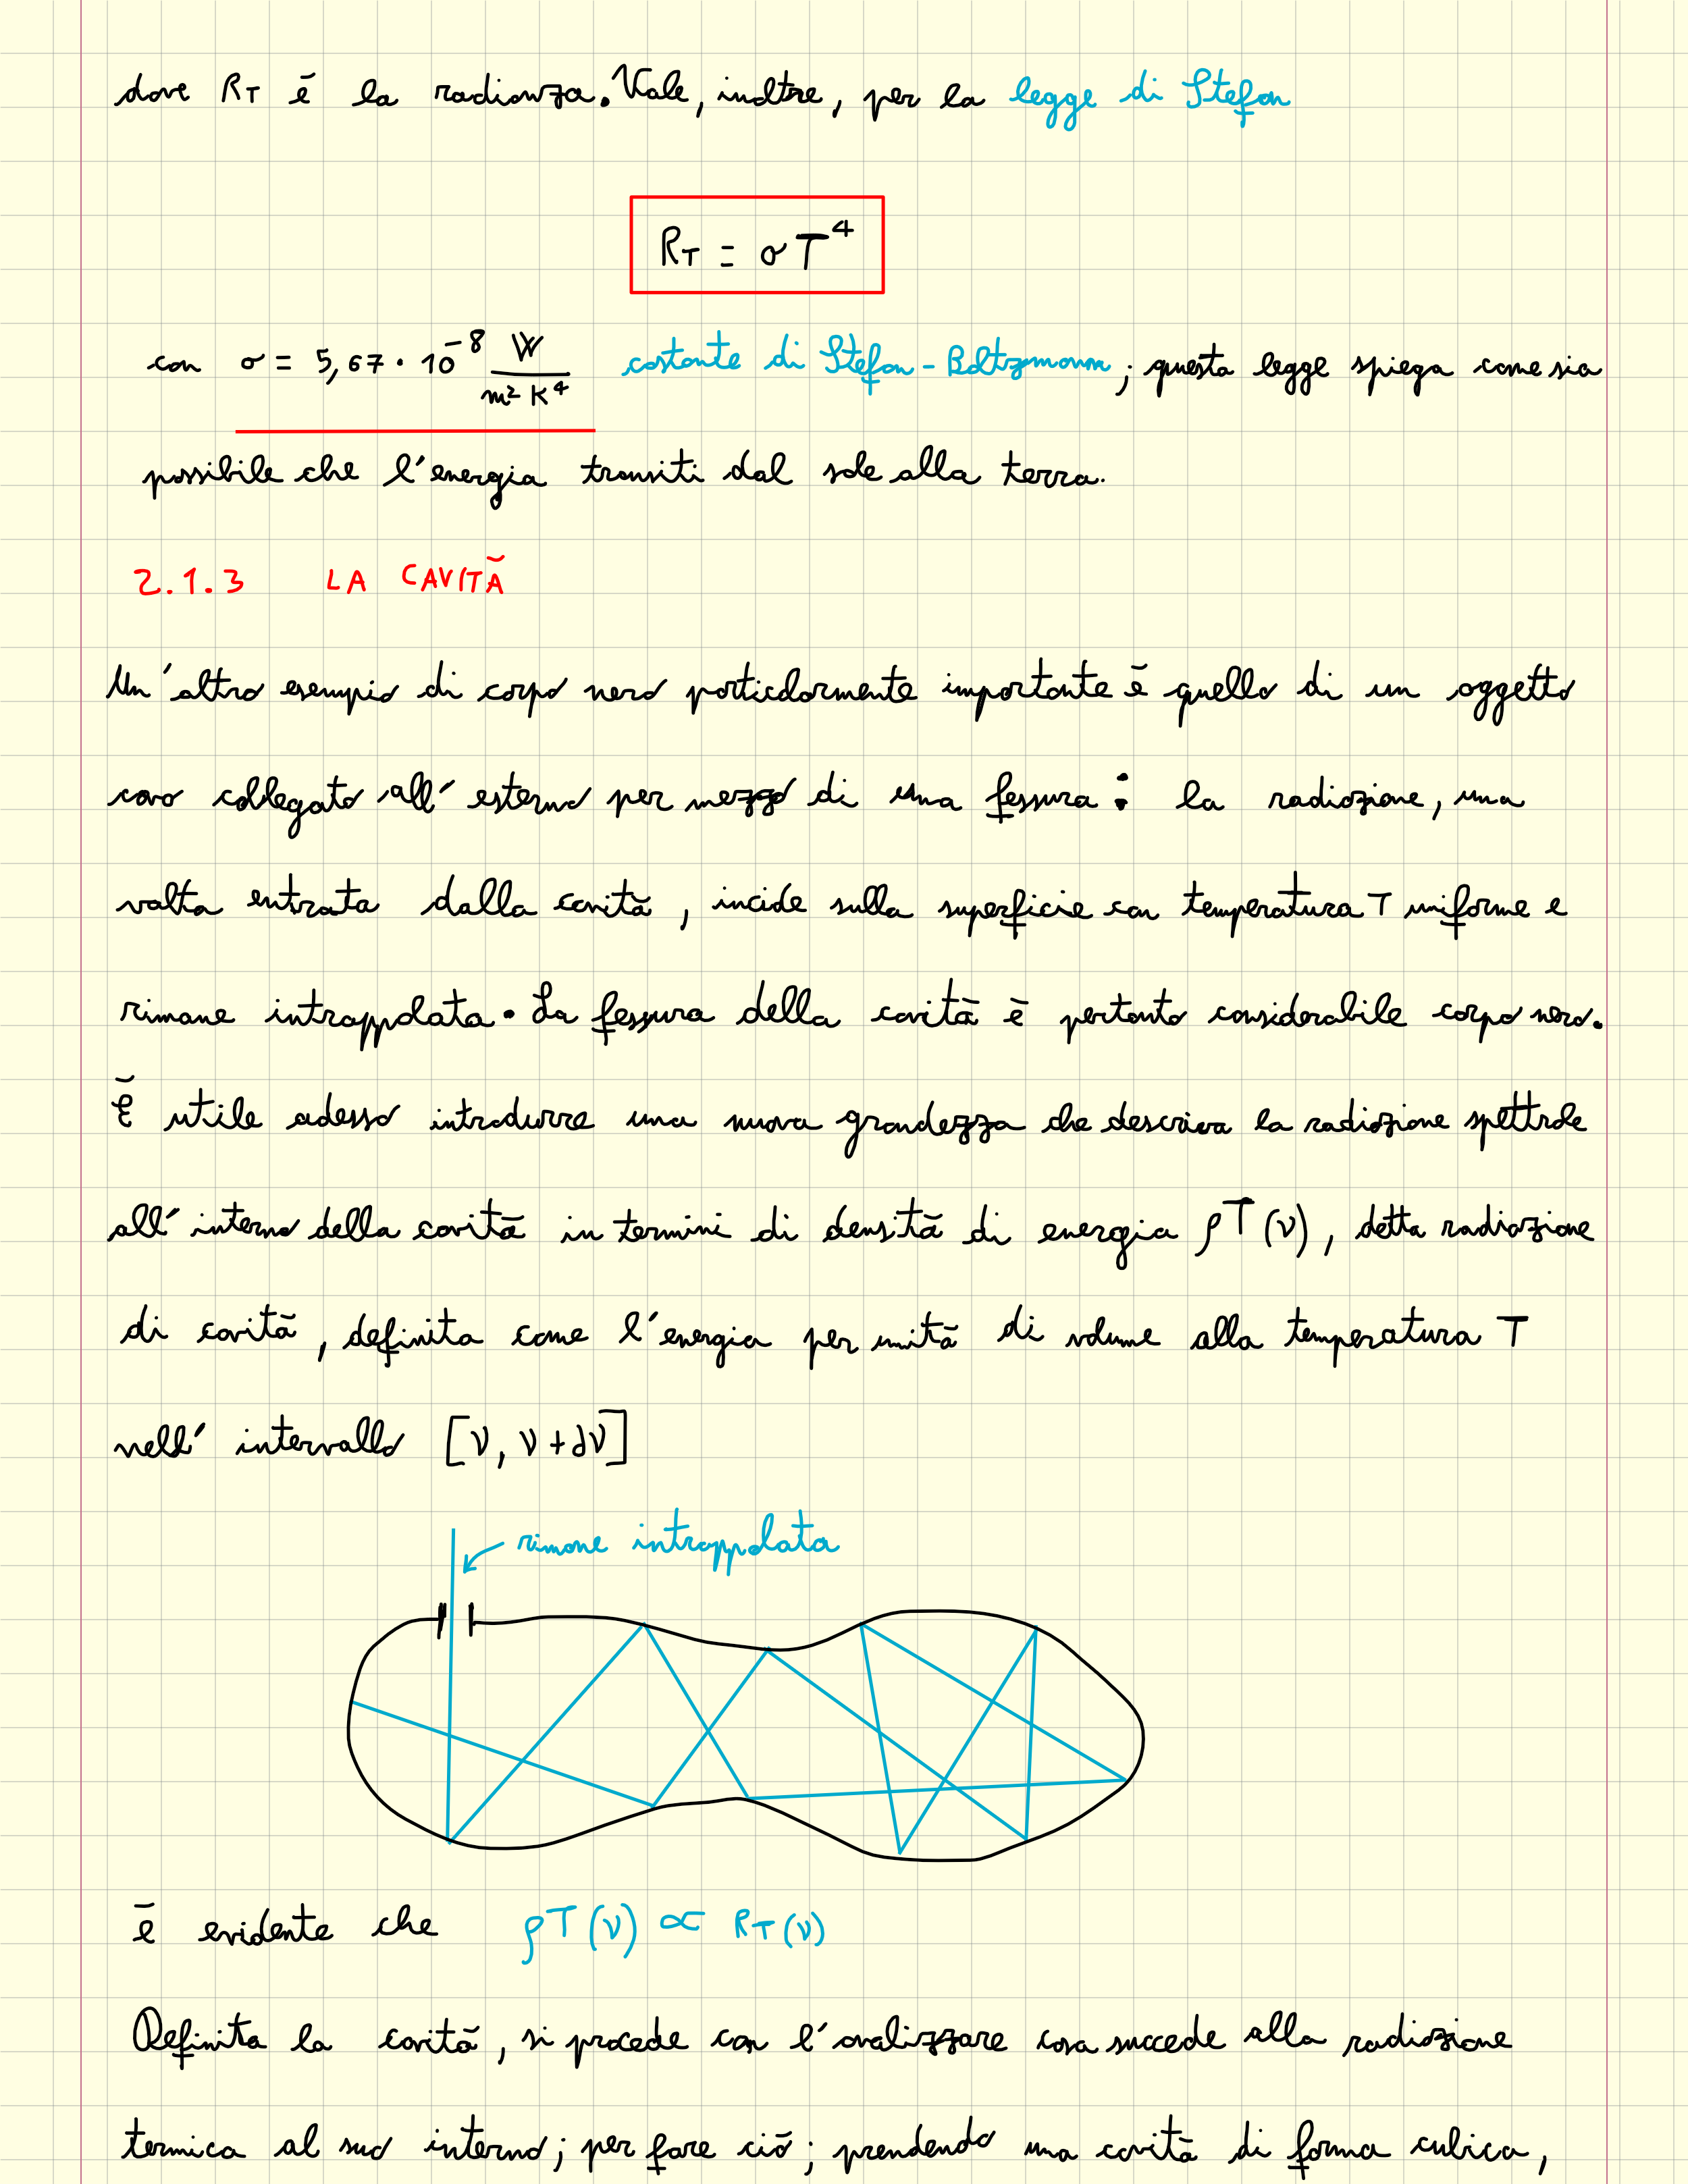 dove R_T ē la radianza. Vale, inoltre, per la legge di Stefan
R_T = σ T⁴
con σ = 5,67 · 10⁻⁸ W/(m² K⁴) costante di Stefan - Boltzmann; questa legge spiega come sia
possibile che l'energia transiti dal sole alla terra.
2.1.3 LA CAVITÃ
Un'altro esempio di corpo nero particolarmente importante ē quello di un oggetto
cavo collegato all'esterno per mezzo di una fessura: la radiazione, una
volta entrata dalla cavitā, incide sulla superficie con temperatura T uniforme e
rimane intrappolata. La fessura della cavitā ē pertanto considerabile corpo nero.
Ē utile adesso introdurre una nuova grandezza che descriva la radiazione spettrale
all'interno della cavitā in termini di densitā di energia ρT(ν), detta radiazione
di cavitā, definita come l'energia per unitā di volume alla temperatura T
nell'intervallo [ν, ν+dν]
rimane intrappolata
ē evidente che ρT(ν) ∝ R_T(ν)
Definita la cavitā, si procede con l'analizzare cosa succede alla radiazione
termica al suo interno; per fare ciō; prendendo una cavitā di forma cubica,